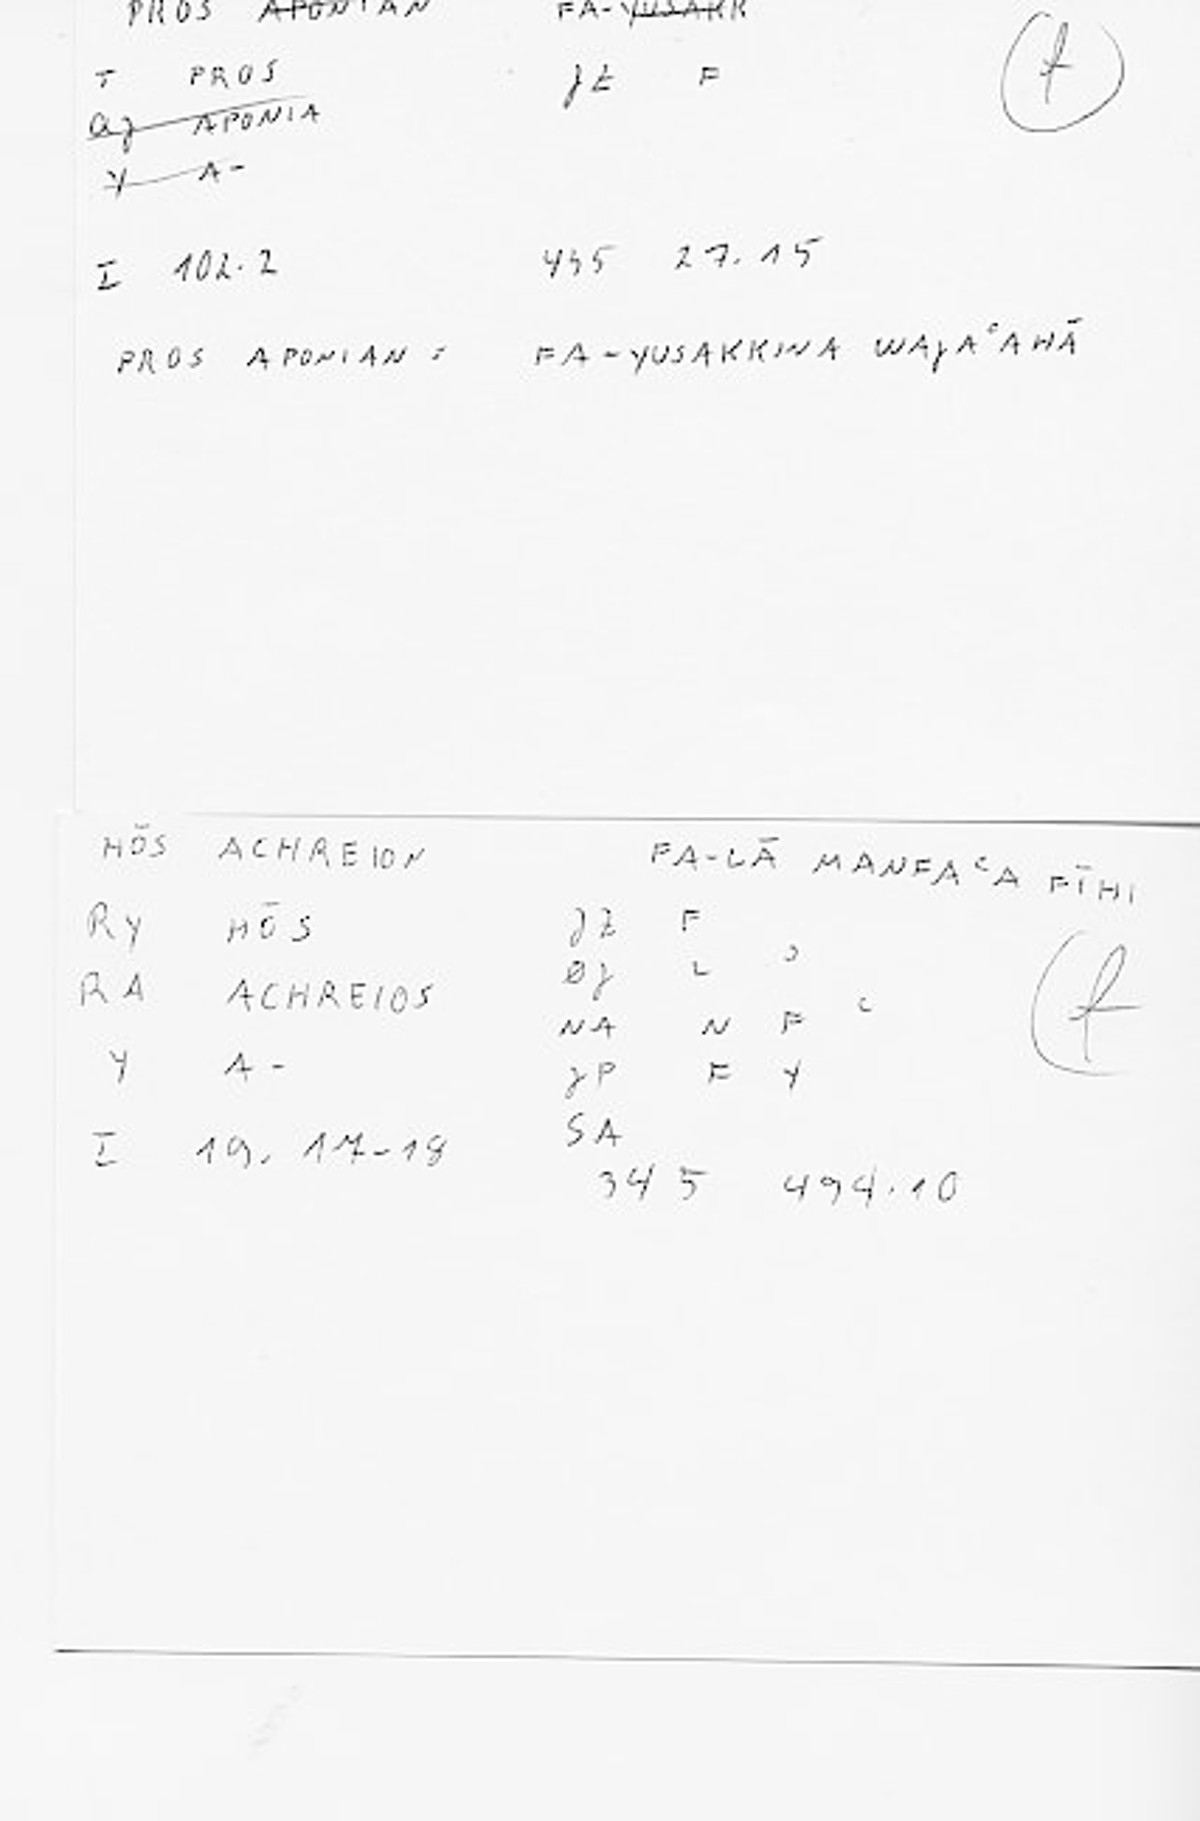 PROS APONIAN FA-YUSAKK
T PROS JZ F t
AJ APONIA
Y A-
I 102.2 445 27.15
PROS APONIAN : FA-YUSAKKINA WAJAʿAHĀ
HŌS ACHREION FA-LĀ MANFAʿA FĪHI
RY HŌS JZ F
RA ACHREIOS ØJ L ʾ t
NA N F ʿ
Y A- JP F Y
I 19. 17-18 SA
345 494.10